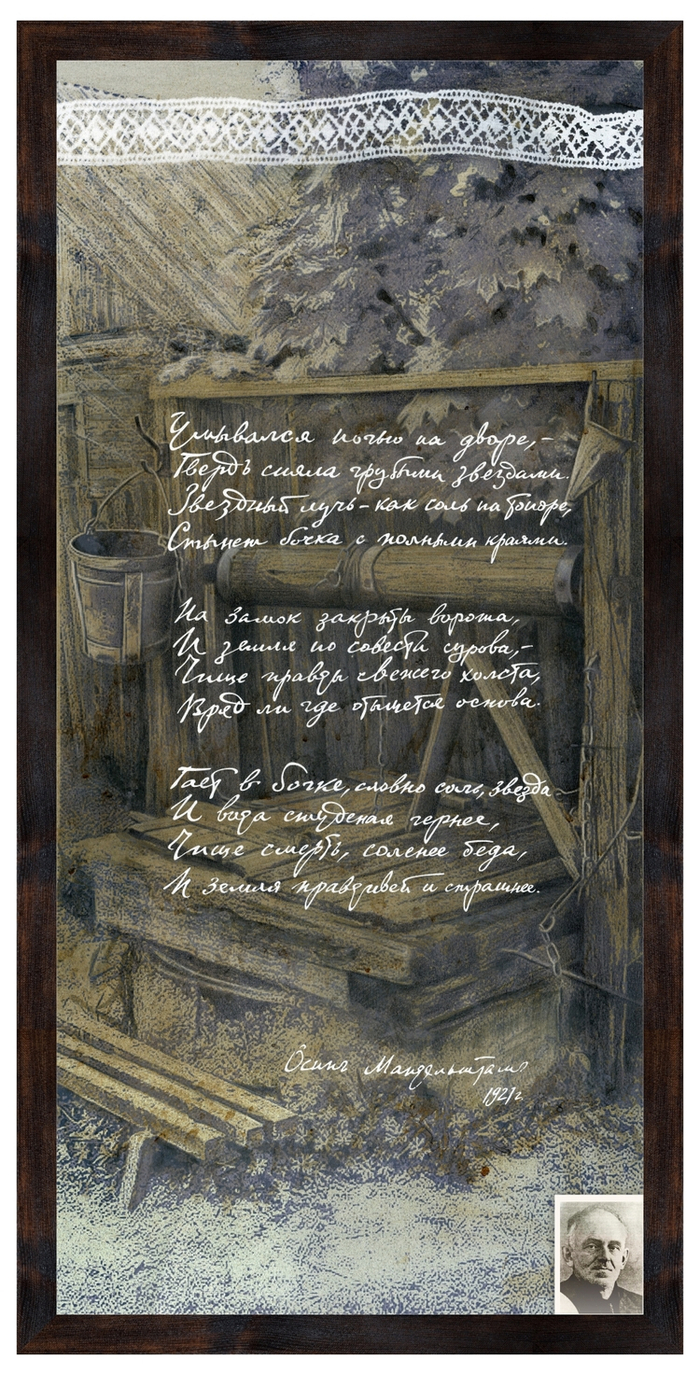 Умывался ночью на дворе,-
Твердь сияла грубыми звездами.
Звездный луч - как соль на топоре,
Стынет бочка с полными краями.
На замок закрыты ворота,
И земля по совести сурова,-
Чище правды свежего холста,
Вряд ли где отыщется основа.
Тает в бочке, словно соль, звезда
И вода студеная чернее,
Чище смерть, соленее беда,
И земля правдивей и страшнее.
Осипъ Мандельштамъ
1921г